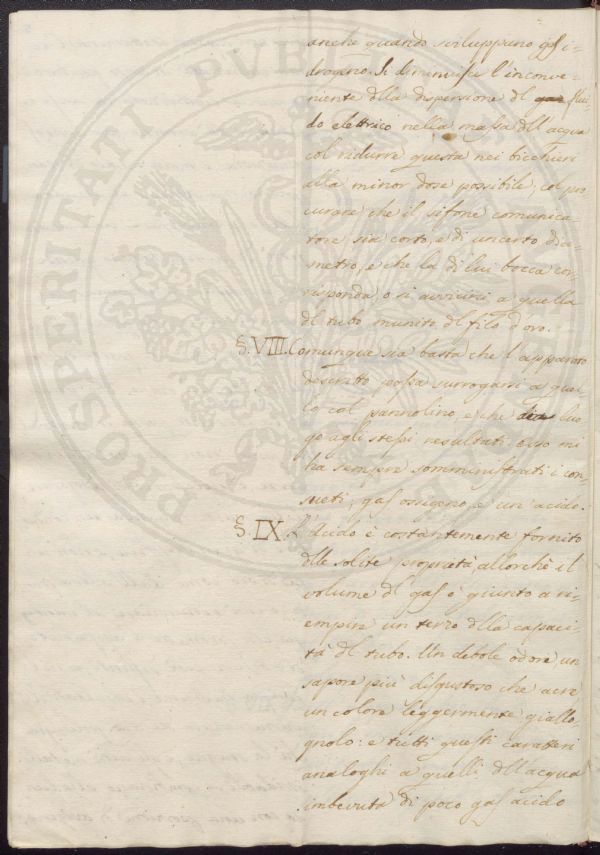 anche quando sviluppano gas i-
drogeno. Si diminuisce l'inconve-
niente dlla dispersione dl gas flui-
do elettrico nella massa dll'acqua
col ridurre questa nei bicchieri
alla minor dose possibile, col pro
curare che il sifone comunica-
tore sia corto, e di un certo dia-
metro, e che la di lui bocca cor-
risponda, o si avvicini a quella
dl tubo munito dl filo d'oro.
§. VIII. Comunque sia basta che l'apparato
descritto possa surrogarsi a quel-
lo col pannolino, e che dia luo
go agli stessi resultati. Esso mi
ha sempre somministrati i con-
sueti; gas ossigeno, e un acido.
§. IX. L'Acido è costantemente fornito
dlle solite proprietà, allorchè il
volume dl gas è giunto a ri-
empire un terzo dlla capaci-
tà dl tubo. Un debole odore un
sapore più disgustoso che acre
un colore leggermente giallo
gnolo: e tutti questi caratteri
analoghi a quelli dll'acqua
imbevuta di poco gas acido
PROSPERITATI PVBLICAE